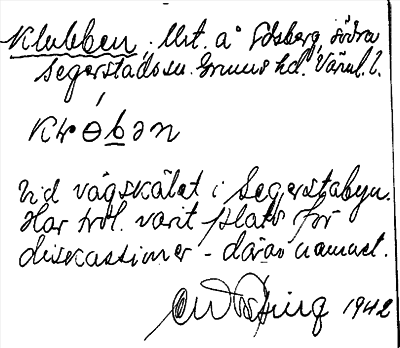 Klubben. Utt. å Edsberg, södra
Segerstads sn. Grums hd. Värml. l.
Krɵbən
Vid vägskälet i Segerstabyn.
Har trol. varit plats för
diskussioner - därav namnet.
1942